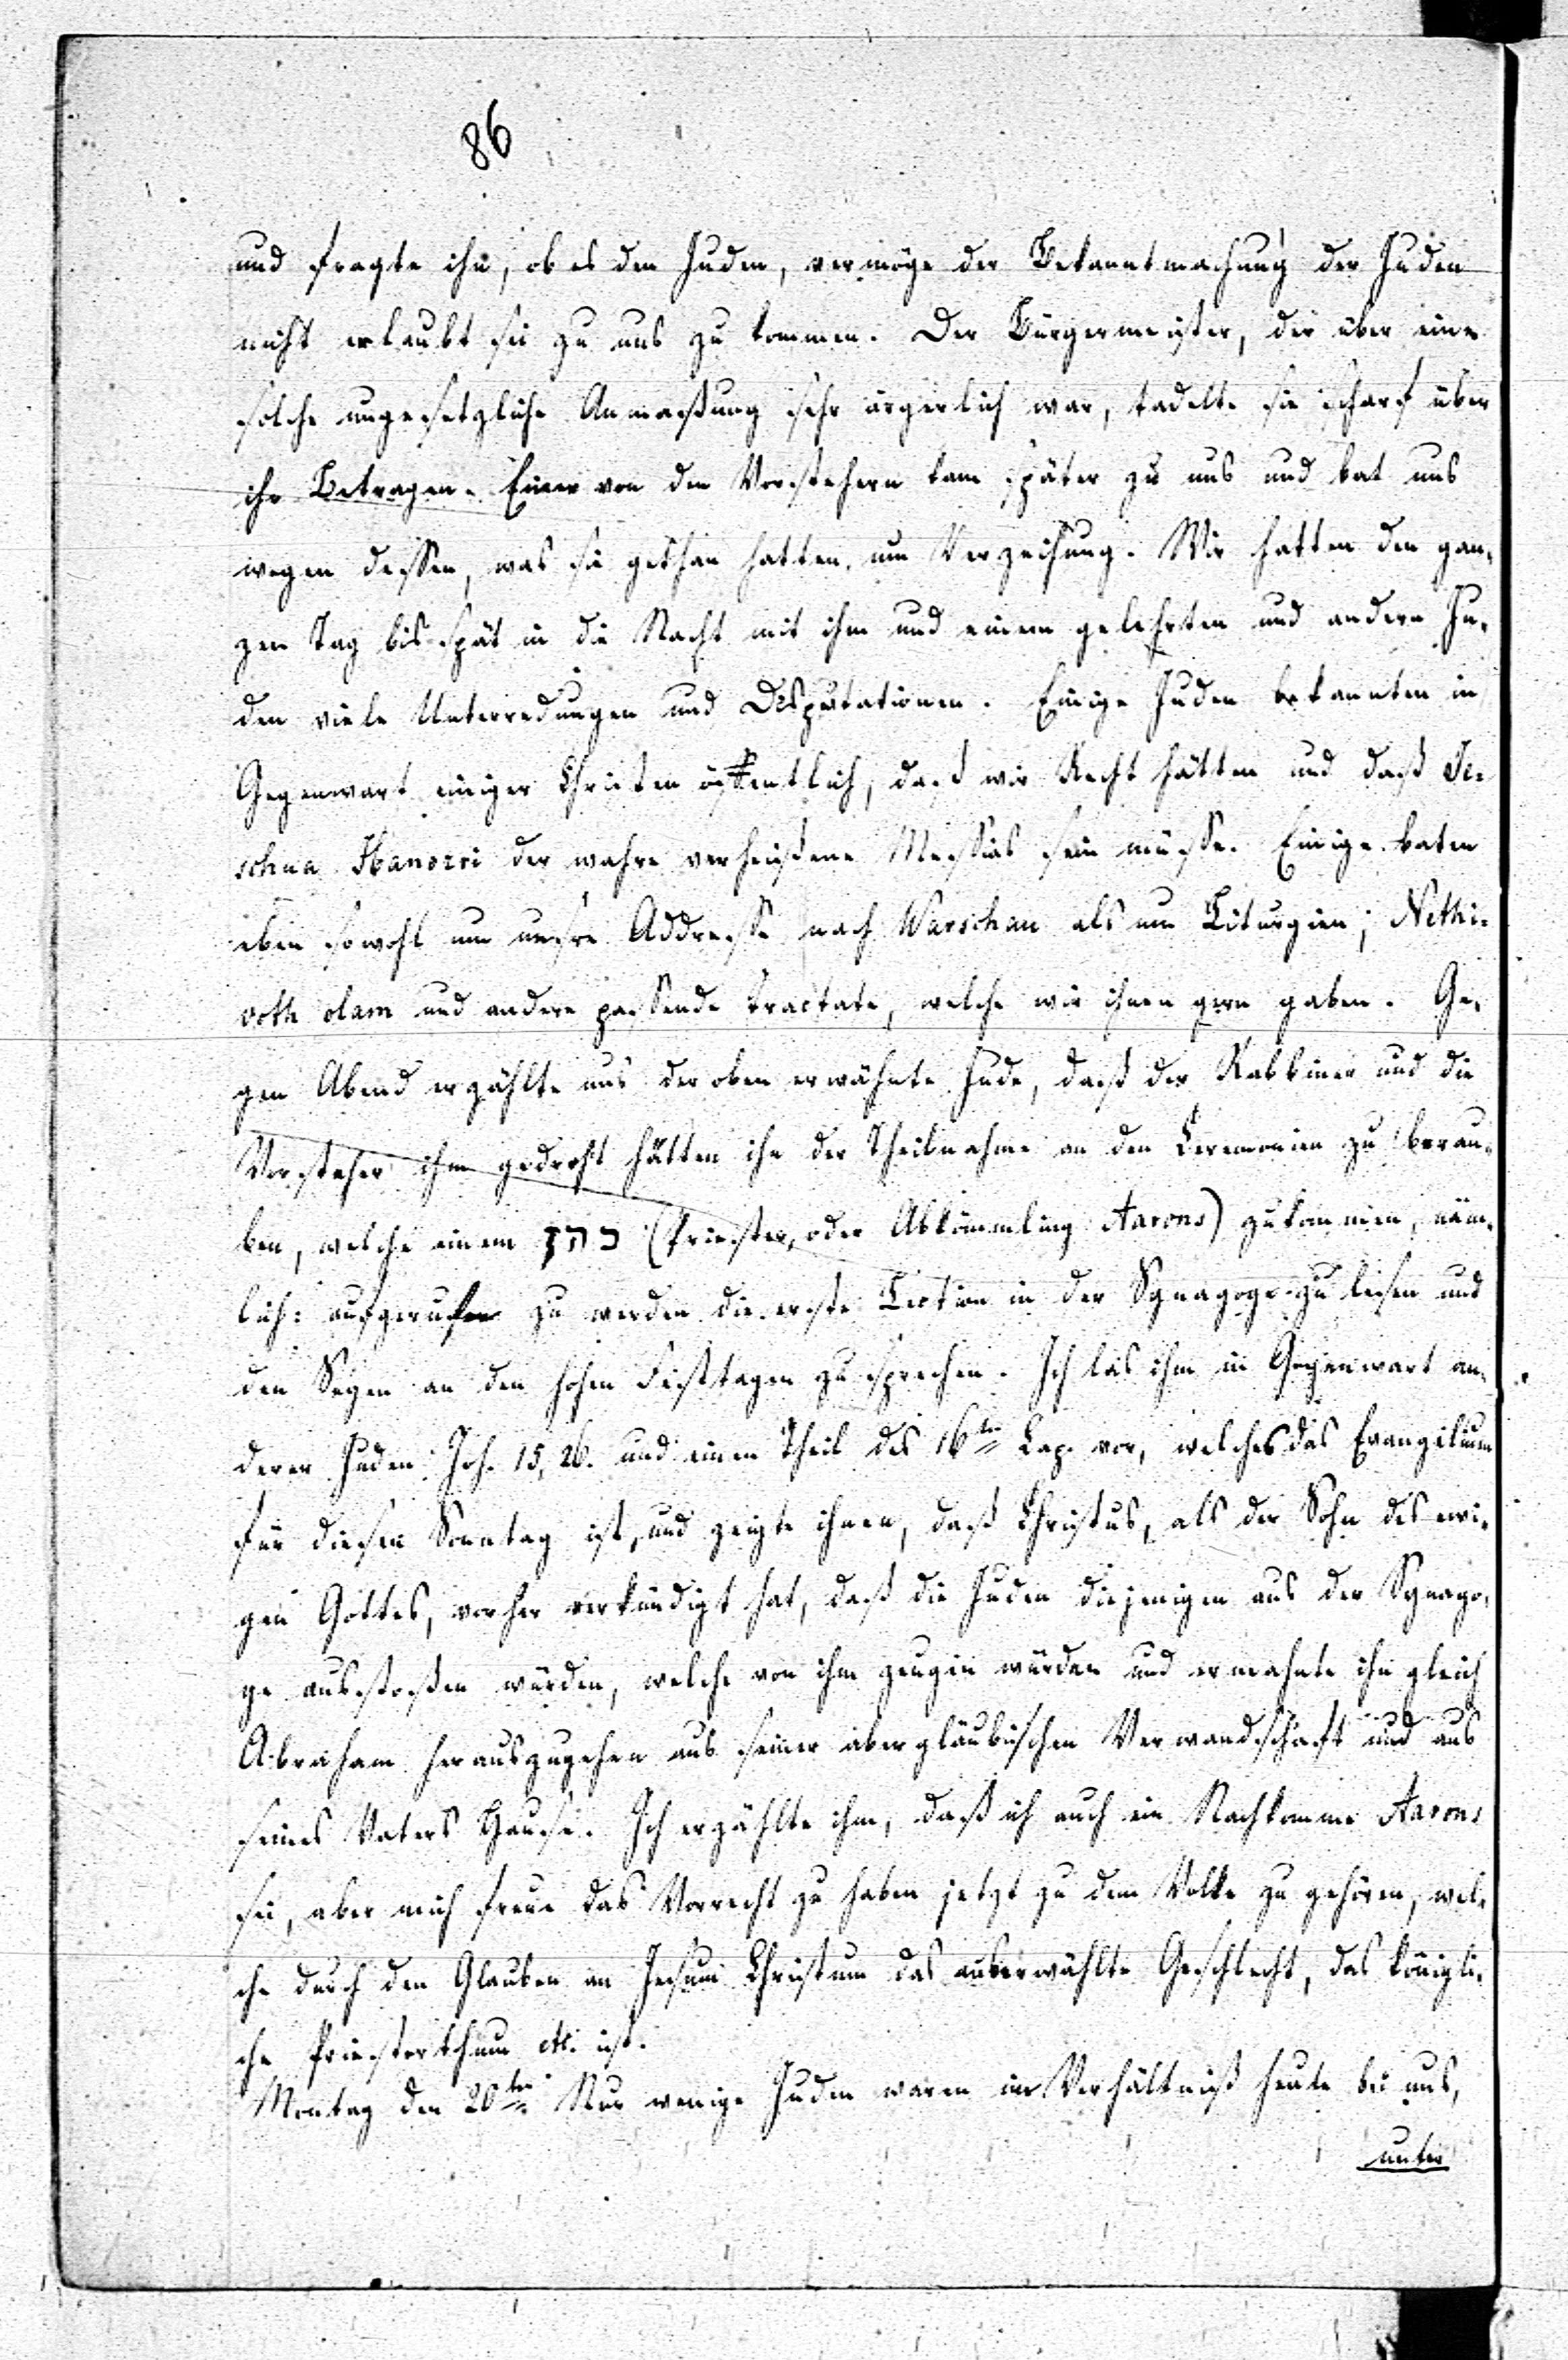 86
und fragte ihn, ob es den Juden, vermöge der Bekanntmachung der Juden
nicht erlaubt sei zu uns zu kommen. Der Bürgermeister, der über eine
solche ungesetzliche Anmaßung sehr ärgerlich war, tadelte sie scharf über
ihr Betragen. Einer von den Vorstehern kam später zu uns und bat uns
wegen dessen, was sie gethan hatten, um Verzeihung. Wir hatten den gan-
zen Tag bis spät in die Nacht mit ihm und einem gelehrten und andern Ju-
den viele Unterredungen und Disputationen. Einige Juden bekannten in
Gegenwart einiger Christen öffentlich, daß wir Recht hätten und daß Je-
schua Hanozri der wahre verheißene Messias sein müsse. Einige baten
eben sowohl um unsre Addresse nach Warschau als um Liturgien; Nethi-
voth olam und andere passende Tractate, welche wir ihnen gern gaben. Ge-
gen Abend erzählte uns der oben erwähnte Jude, daß der Rabbiner und die
Vorsteher ihm gedroht hätten ihn der Theilnahme an den Ceremonien zu berau-
ben, welche einem כהן (Priester, oder Abkömmling Aarons) zukommen, näm-
lich: aufgerufen zu werden die erste Lection in der Synagoge zu lesen und
den Segen an den hohen Festtagen zu sprechen. Ich las ihm in Gegenwart an-
derer Juden Joh. 15, 26. und einen Theil des 16ten Cap. vor, welches das Evangelium
für diesen Sonntag ist, und zeigte ihnen, daß Christus, als der Sohn des ewi-
gen Gottes, vorher verkündigt hat, daß die Juden diejenigen aus der Synago-
ge ausstoßen würden, welche von ihm zeugen würden und ermahnte ihn gleich
Abraham herauszugehen aus seiner abergläubischen Verwandschaft und aus
seines Vaters Hause. Ich erzählte ihm, daß ich auch ein Nachkomme Aarons
sei, aber mich freue das Vorrecht zu haben jetzt zu dem Volke zu gehören, wel-
che durch den Glauben an Jesum Christum das auserwählte Geschlecht, das königli-
che Priesterthum etc. ist.
Montag den 20ten Nur wenige Juden waren im Verhältniß heute bei uns,
unter